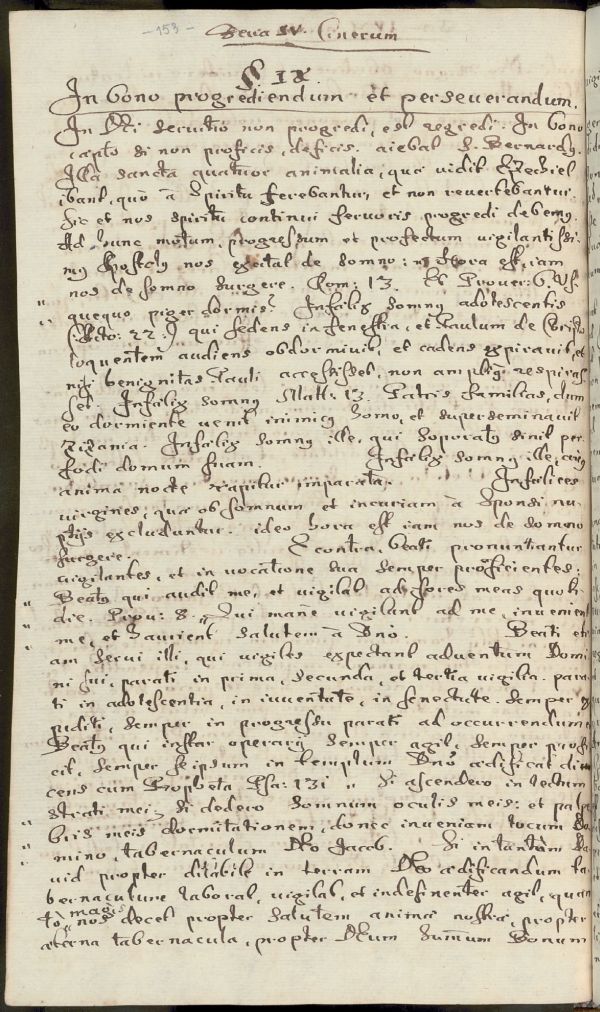 - 153 -
Feria IV. Cinerum
§ IX.
In bono progrediendum et perseverandum.
In Dei servitio non progredi, est regredi. In bono
capto si non proficis, deficis. aiebat S. Bernardus.
Illa sancta quatuor animalia, quæ vidit Ezechiel
ibant, quò à Spiritu ferebantur, et non revertebantur.
Sic et nos Spiritu continui fervoris progredi debemus.
Ad hunc motum, progressum et profectum vigilantissi-
mus Apostolus nos excitat de somno: Hora est, iam
nos de somno surgere. Rom: 13. Et Prover: 6. Vs.
quequo piger dormis? Infelix somnus adolescentis
(Acto: 22.) qui sedens in fenestra, et Paulum de Christo
loquentem audiens obdormivit, et cadens expiravit, et
nisi benignitas Pauli accessisset, non amplius respiras
set. Infelix somnus Matt: 13. Patris familias, dum
eo dormiente venit inimicus homo, et superseminavit
zizania. Infelix somnus ille, qui soporatus sinit per
fodi domum suam. Infelix somnus ille, cuius
anima nocte rapitur imparata. Infelices
virgines, quæ ob somnum et incuriam à Sponsi nu
ptijs excluduntur. ideo hora est iam nos de somno
surgere. E contra, beati pronuntiantur
vigilantes, et in vocatione sua semper proficientes:
Beatus qui audit me, et vigilat ad fores meas quoti-
die. Prov: 8. Qui manè vigilant ad me, invenient
me, et haurient salutem à Dno. Beati eti
am servi illi, qui vigiles expectant adventum Domi
ni sui, parati in prima, secunda, et tertia vigilia. para
ti in adolescentia, in iuventute, in senectute. semper ex
pediti, semper in progressu parati ad occurrendum.
Beatus qui instar operarij semper agit, semper profi
cit, semper se ipsum in templum Dno ædificat di
cens cum Propheta Psa: 131 Si ascendero in lectum
strati mei: si dedero somnum oculis meis: et palpe
bris meis dormitationem, donec inveniam locum Do
mino, tabernaculum Deo Jacob. Si intantùm Da
vid propter ditabile in terram Deo ædificandum ta
bernaculum laborat, vigilat, et indefinenter agit, quan
tò magis nos decet propter salutem animæ nostræ, propter
æterna tabernacula, propter Deum summum Bonum